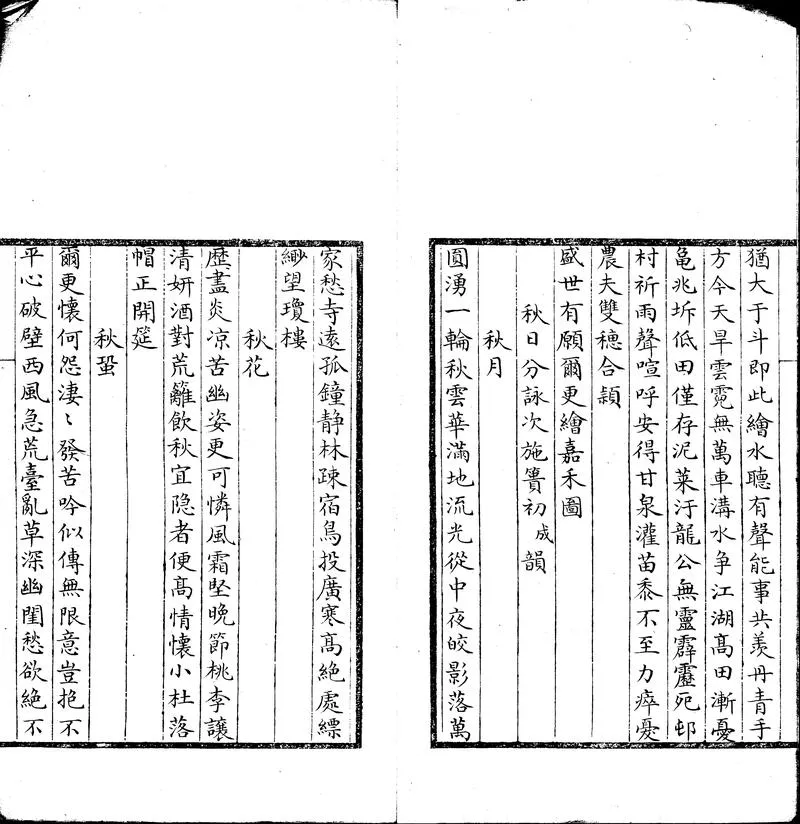 猶大于斗即此繪水聽有聲能事共羨丹青手
方今天旱雲霓無萬車溝水争江湖高田漸憂
龜兆坼低田僅存泥菜汙龍公無靈霹靂死邨
村祈雨聲喧呼安得甘泉灌苗黍不至力瘁憂
農夫雙穗合頴
盛世有願爾更繪嘉禾圖
秋日分詠次施蕢初成韻
秋月
圓湧一輪秋雲華滿地流光從中夜皎影落萬
家愁寺遠孤鐘静林疎宿鳥投廣寒高絶處縹
緲望瓊樓
秋花
歷盡炎凉苦幽姿更可憐風霜堅晚節桃李讓
清妍酒對荒籬飲秋宜隐者便高情懷小杜落
帽正開筵
秋蛩
爾更懷何怨淒〻發苦吟似傳無限意豈抱不
平心破壁西風急荒臺亂草深幽閨愁欲絶不